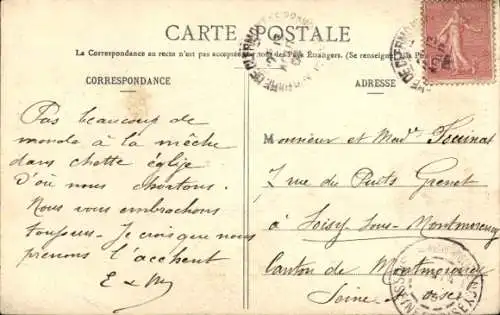 CARTE POSTALE
La Correspondance au recto n'est pas acceptée par tous les Pays Étrangers. (Se renseigner
CORRESPONDANCE
ADRESSE
Pas beaucoup de
monde à la mêche
dans chette églige
D'où nous chortons.
Nous vous embrachons
toujours - Je crois que nous
prenons l'acchent
E & M
Monsieur et Mad^e
7 rue du Puits Grenet
à Soisy sous-Montmorency
Canton de Montmorency
Seine & Oise